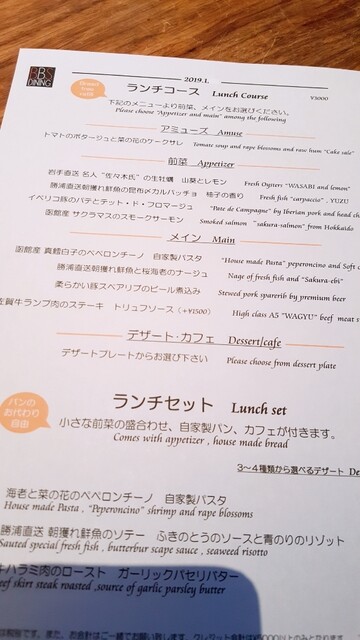 BBS
DINING
2019.1.
ランチコース Lunch Course ¥3000
下記のメニューより前菜、メインをお選びください。
Please choose "Appetizer and main" among the following
アミューズ Amuse
トマトのポタージュと菜の花のケークサレ Tomato soup and rape blossoms and raw ham "Cake sale"
前菜 Appetizer
岩手直送 名人 "佐々木氏" の生牡蠣 山葵とレモン Fresh Oysters "WASABI and lemon"
勝浦直送朝獲れ鮮魚の昆布〆カルパッチョ 柚子の香り Fresh fish "carpaccio", YUZU
イベリコ豚のパテとテット・ド・フロマージュ "Pate de Campagne" by Iberian pork and head ch
函館産 サクラマスのスモークサーモン Smoked salmon "sakura-salmon" from Hokkaido
メイン Main
函館産 真鱈白子のペペロンチーノ 自家製パスタ "House made Pasta" peperoncino and Soft c
勝浦直送朝獲れ鮮魚と桜海老のナージュ Nage of fresh fish and "Sakura-ebi"
柔らかい豚スペアリブのビール煮込み Stewed pork sparerib by premium beer
佐賀牛ランプ肉のステーキ トリュフソース (+¥1500) High class A5 "WAGYU" beef meat s
デザート・カフェ Dessert/cafe
デザートプレートからお選び下さい Please choose from dessert plate
パンの
お代わり
自由
ランチセット Lunch set
小さな前菜の盛合わせ、自家製パン、カフェが付きます。
Comes with appetizer , house made bread
3～4種類から選べるデザート De
海老と菜の花のペペロンチーノ 自家製パスタ
House made Pasta , "Peperoncino" shrimp and rape blossoms
勝浦直送 朝獲れ鮮魚のソテー ふきのとうのソースと青のりのリゾット
Sauted special fresh fish , butterbur scape sauce , seaweed risotto
牛ハラミ肉のロースト ガーリックパセリバター
Beef skirt steak roasted ,source of garlic parsley butter